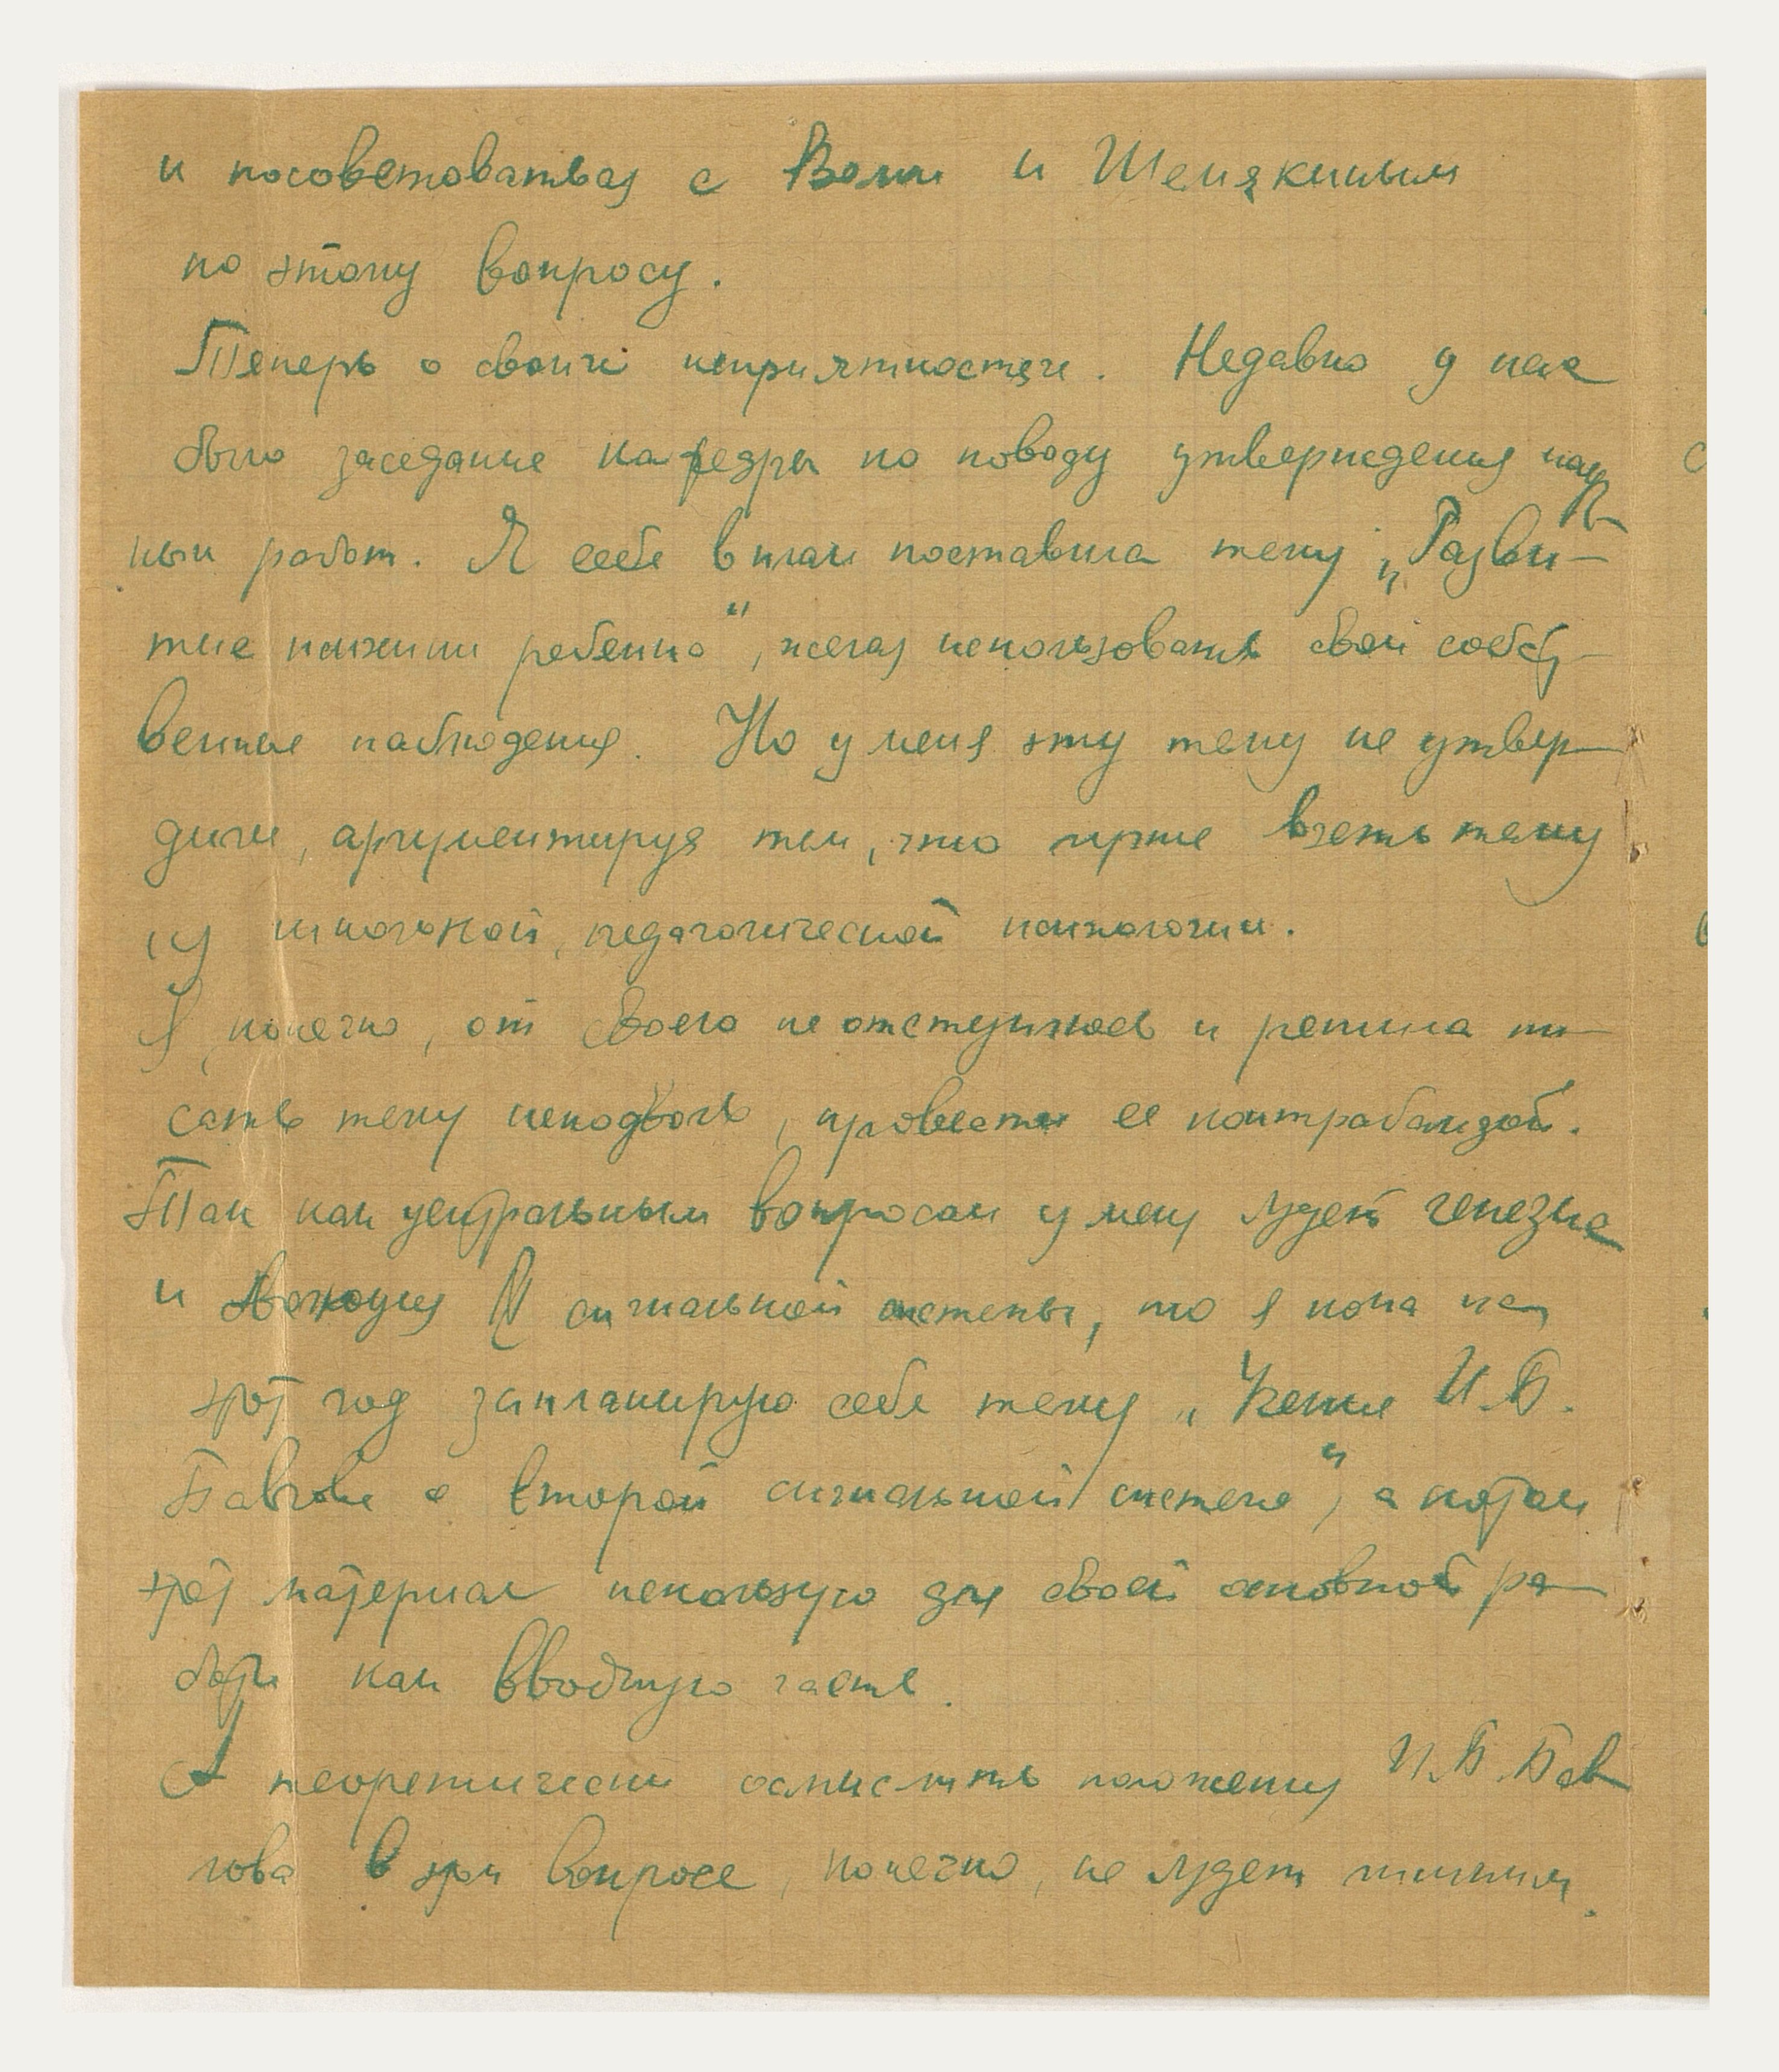 и посоветоваться с Вами и Шемякиным
по этому вопросу.
Теперь о своих неприятностях. Недавно у нас
было заседание кафедры по поводу утверждения науч
ных работ. Я себе в план поставила тему „Разви-
тие психики ребенка", желая использовать свои собст-
венные наблюдения. Но у меня эту тему не утвер-
дили, аргументируя тем, что лучше взять тему
из школьной, педагогической психологии.
Я, конечно, от своего не отступилась и решила пи-
сать тему исподволь, провести ее контрабандой.
Так как центральным вопросом у меня будет генезис
и II сигнальной системы, то я пока на
этот год запланирую себе тему „Учение И.П.
Павлова о второй сигнальной системе", а потом
этот материал использую для своей основной ра-
боты как вводную часть.
А теоретически осмыслить положения И.П. Пав
лова в этом вопросе, конечно, не будет лишним.